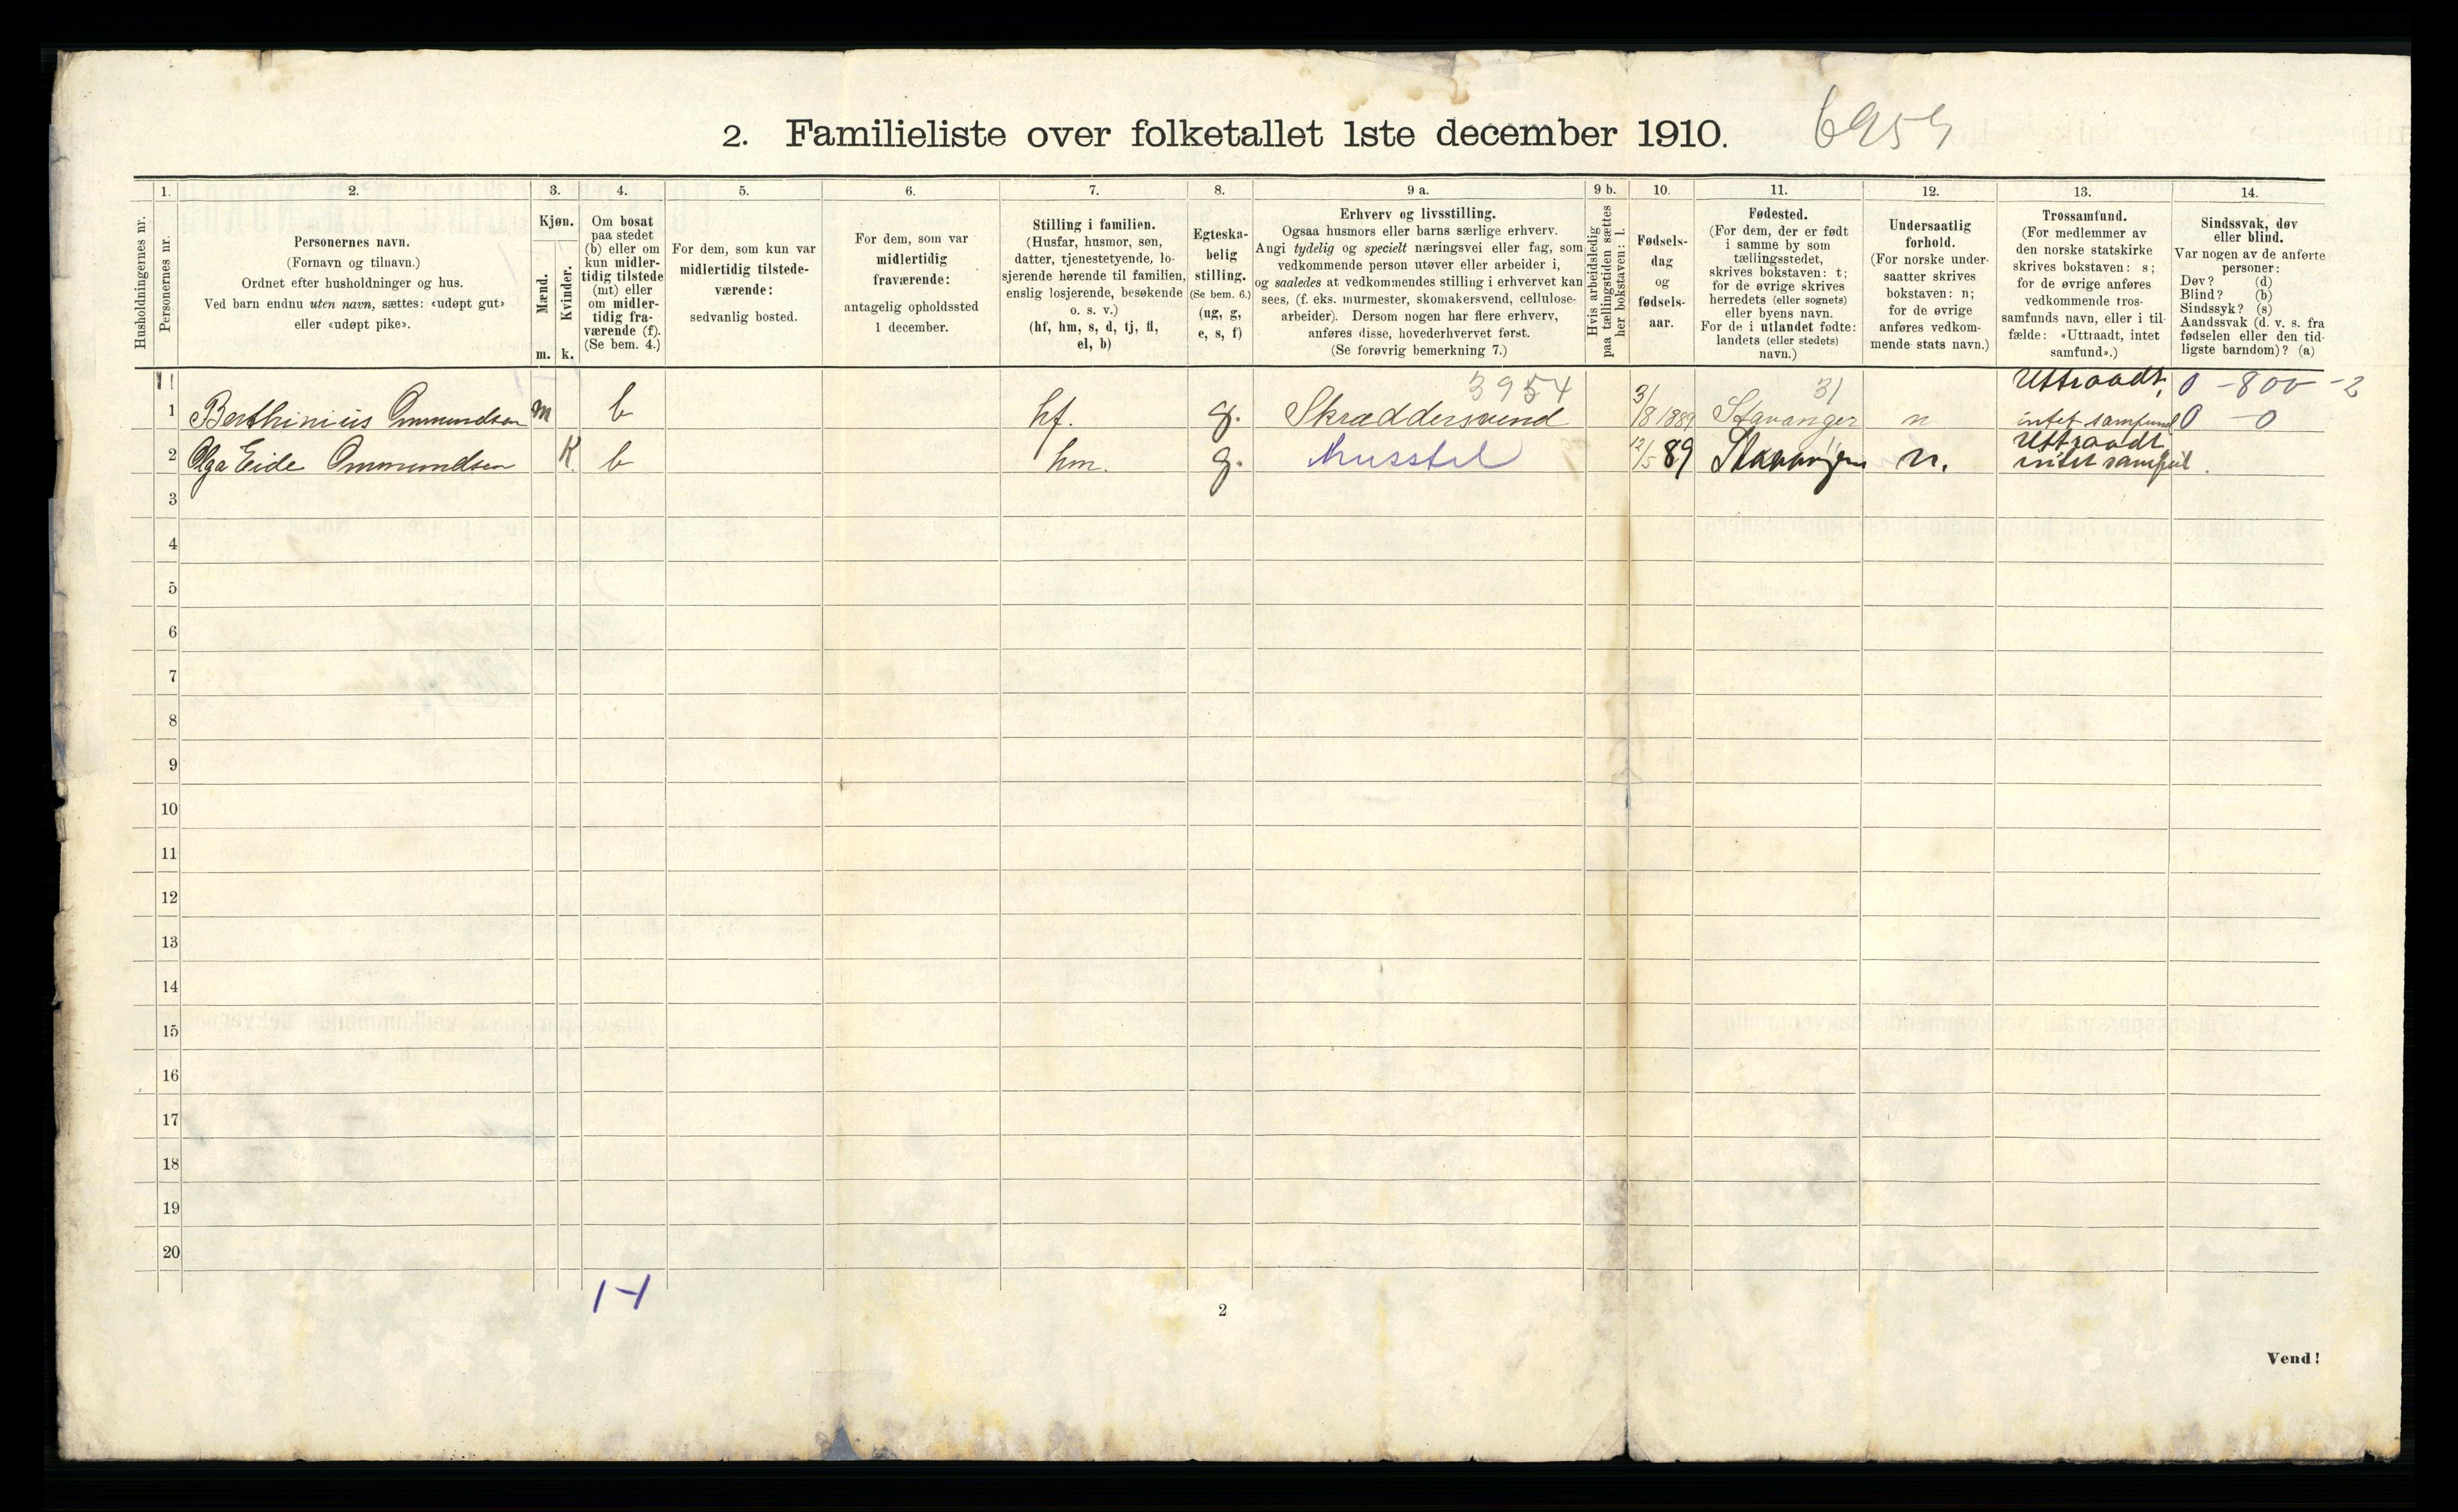 2. Familieliste over folketallet 1ste december 1910.
6959
Husholdningernes nr.
1.
Personernes nr.
2.
Personernes navn.
(Fornavn og tilnavn.)
Ordnet efter husholdninger og hus.
Ved barn endnu uten navn, sættes: «udøpt gut»
eller «udøpt pike».
3.
Kjøn.
Mænd.
Kvinder.
m. k.
4.
Om bosat
paa stedet
(b) eller om
kun midler-
tidig tilstede
(mt) eller
om midler-
tidig fra-
værende (f).
(Se bem. 4.)
5.
For dem, som kun var
midlertidig tilstede-
værende:
sedvanlig bosted.
6.
For dem, som var
midlertidig
fraværende:
antagelig opholdssted
1 december.
7.
Stilling i familien.
(Husfar, husmor, søn,
datter, tjenestetyende, lo-
sjerende hørende til familien,
enslig losjerende, besøkende
o. s. v.)
(hf, hm, s, d, tj, fl,
el, b)
8.
Egteska-
belig
stilling.
(Se bem. 6.)
(ug, g,
e, s, f)
9 a.
Erhverv og livsstilling.
Ogsaa husmors eller barns særlige erhverv.
Angi tydelig og specielt næringsvei eller fag, som
vedkommende person utøver eller arbeider i,
og saaledes at vedkommendes stilling i erhvervet kan
sees, (f. eks. murmester, skomakersvend, cellulose-
arbeider). Dersom nogen har flere erhverv,
anføres disse, hovederhvervet først.
(Se forøvrig bemerkning 7.)
9 b.
Hvis arbeidsledig
paa tællingstiden sættes
her bokstaven: l.
10.
Fødsels-
dag
og
fødsels-
aar.
11.
Fødested.
(For dem, der er født
i samme by som
tællingsstedet,
skrives bokstaven: t;
for de øvrige skrives
herredets (eller sognets)
eller byens navn.
For de i utlandet fødte:
landets (eller stedets)
navn.)
12.
Undersaatlig
forhold.
(For norske under-
saatter skrives
bokstaven: n;
for de øvrige
anføres vedkom-
mende stats navn.)
13.
Trossamfund.
(For medlemmer av
den norske statskirke
skrives bokstaven: s;
for de øvrige anføres
vedkommende tros-
samfunds navn, eller i til-
fælde: «Uttraadt, intet
samfund».)
14.
Sindssvak, døv
eller blind.
Var nogen av de anførte
personer:
Døv? (d)
Blind? (b)
Sindssyk? (s)
Aandssvak (d. v. s. fra
fødselen eller den tid-
ligste barndom)? (a)
3954 31 Uttraadt, 0 - 800 - 2
1 Berthinius Ommundsen m b hf. g. Skræddersvend 3/8 1889 Stavanger n intet samfund 0 - 0
Uttraadt
2 Olga Eide Ommundsen K b hm. g. Husstel 12/5 89 Stavanger n. intet samfund.
3
4
5
6
7
8
9
10
11
12
13
14
15
16
17
18
19
20
2
Vend!